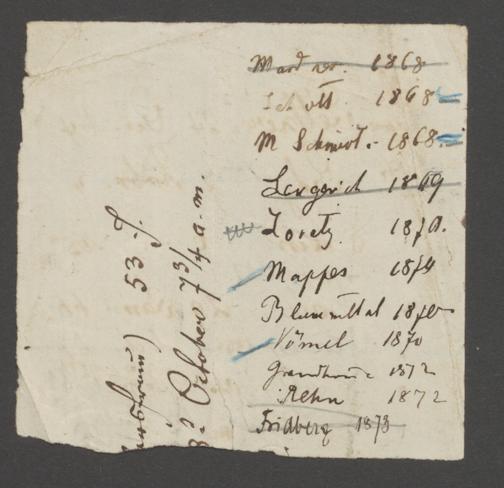 1868
Schott. 1868
M Schmidt. 1868.
Lengerich 1869
Loretz 1870.
Mappes 1874
Blumenthal 1870
Vömel 1870
1872
Rehn 1872
Fridberg 1873
53 J.
October 7 3/4 a.m.